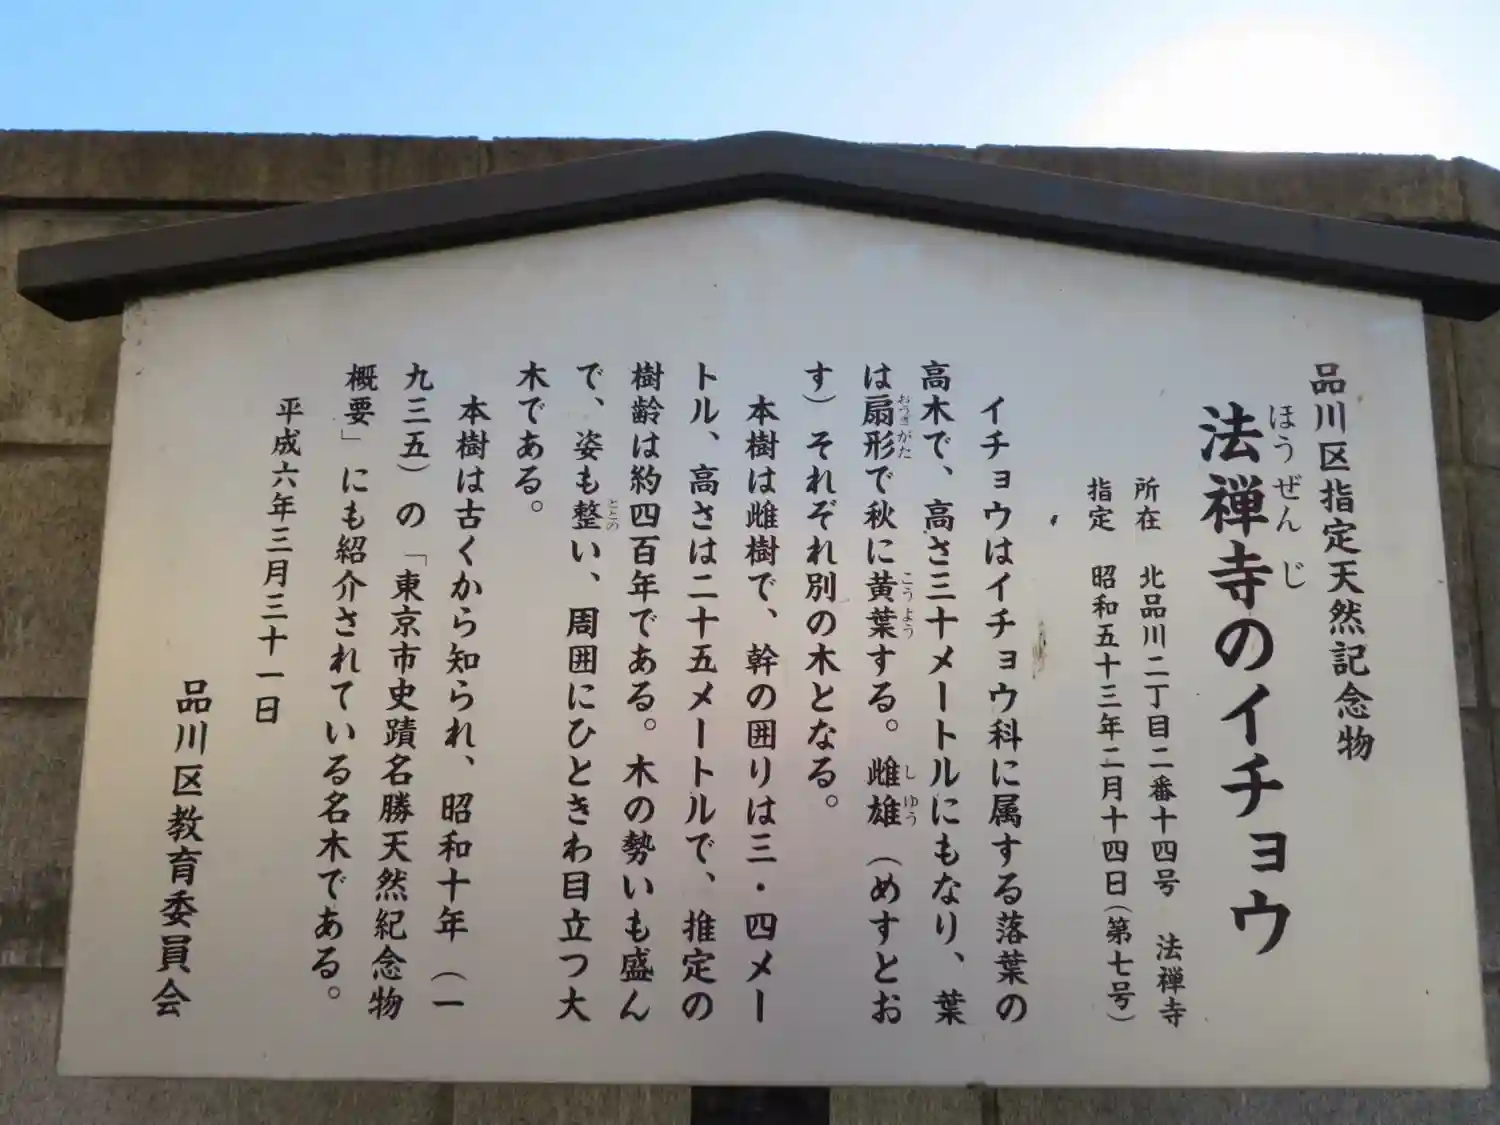 品川区指定天然記念物
ほうぜんじ
法禅寺のイチョウ
所在 北品川二丁目二番十四号 法禅寺
指定 昭和五十三年二月十四日(第七号)
イチョウはイチョウ科に属する落葉の
高木で、高さ三十メートルにもなり、葉
おうぎがた こうよう しゆう
は扇形で秋に黄葉する。雌雄(めすとお
す)それぞれ別の木となる。
本樹は雌樹で、幹の囲りは三・四メー
トル、高さは二十五メートルで、推定の
樹齢は約四百年である。木の勢いも盛ん
ととの
で、姿も整い、周囲にひときわ目立つ大
木である。
本樹は古くから知られ、昭和十年(一
九三五)の「東京市史蹟名勝天然紀念物
概要」にも紹介されている名木である。
平成六年三月三十一日
品川区教育委員会